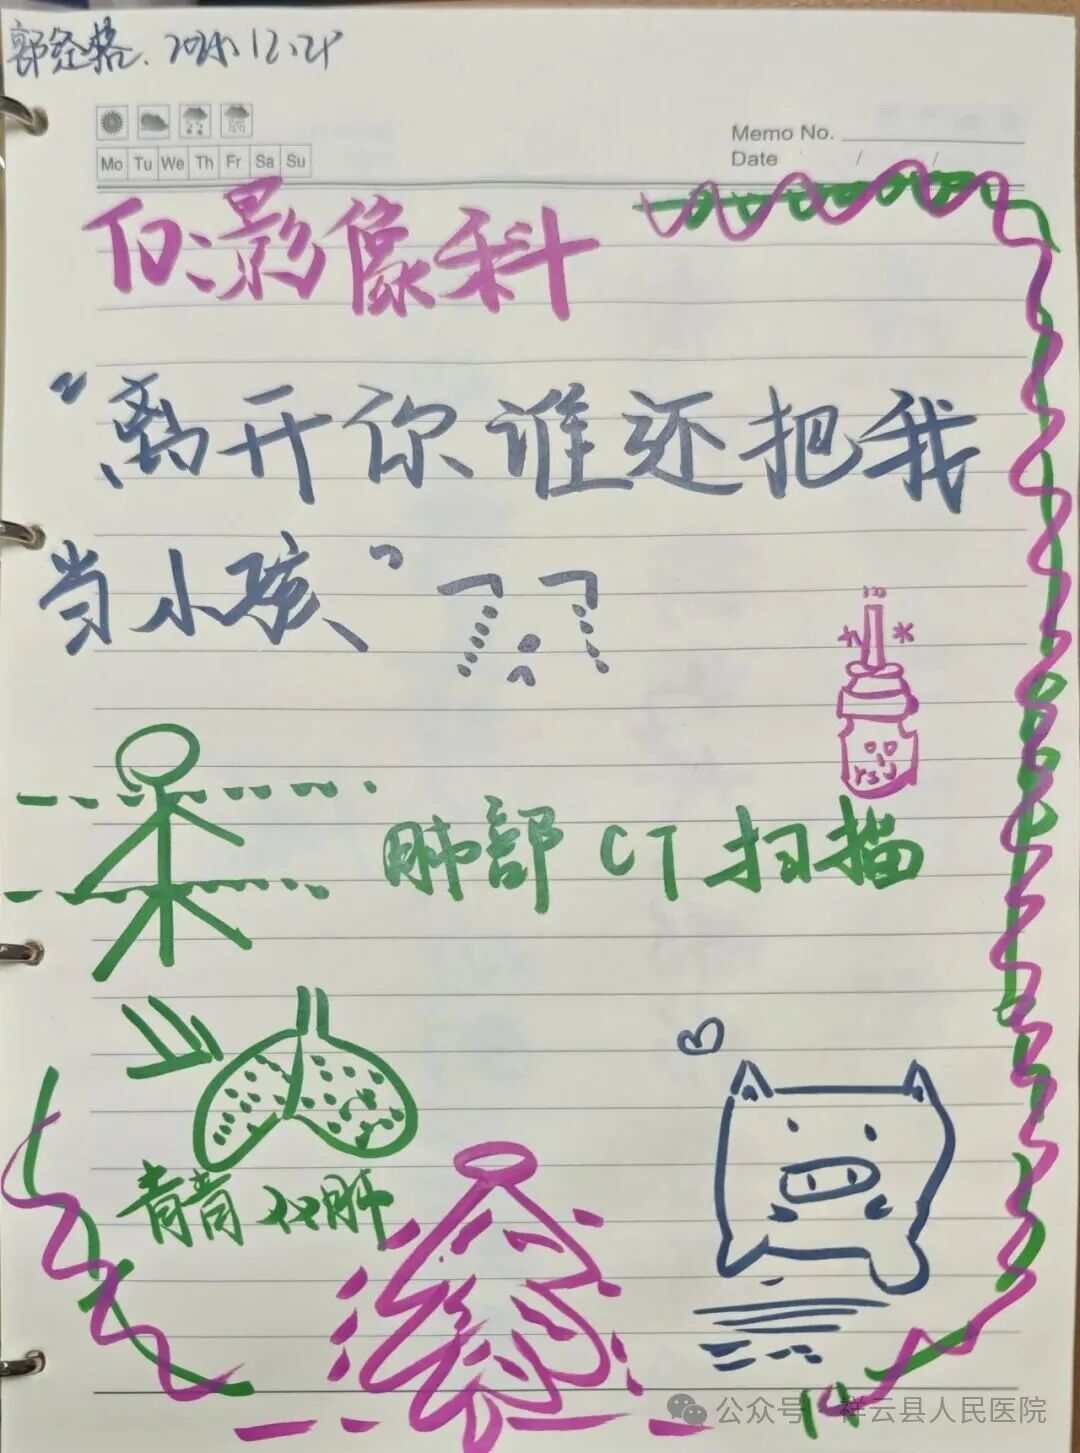 郭经格. 2024.12.28
Memo No.
Date / /
Mo Tu We Th Fr Sa Su
To:影像科
“离开你谁还把我
当小孩”
肺部 CT 扫描
青青 肺
14
公众号 · 祥云县人民医院